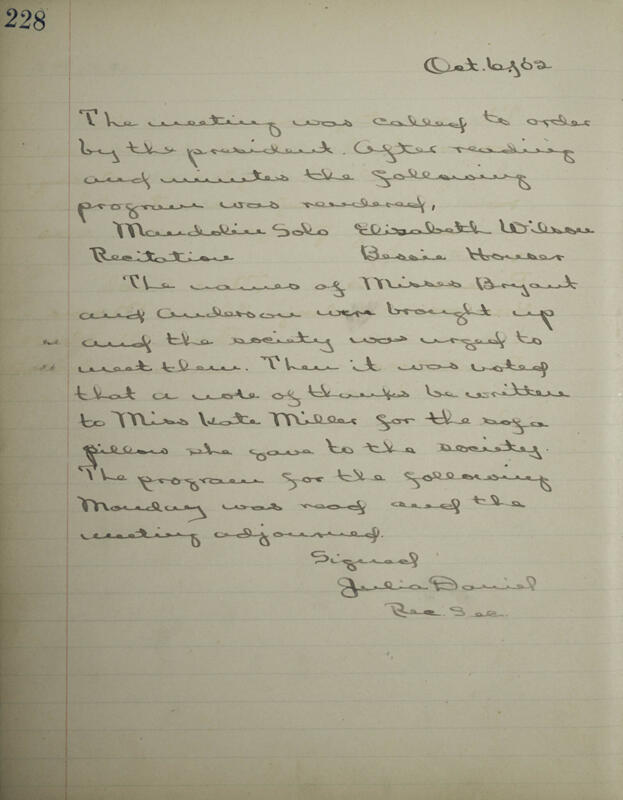 228
Oct. 6, '02
The meeting was called to order
by the president. After reading
and minutes the following
program was rendered,
Mandolin Solo Elizabeth Wilson
Recitation Bessie Houser
The names of Misses Bryant
and Anderson were brought up
and the society was urged to
meet them. Then it was voted
that a note of thanks be written
to Miss Kate Miller for the sofa
pillow she gave to the society.
The program for the following
Monday was read and the
meeting adjourned.
Signed
Julia Daniel
Rec. Sec.